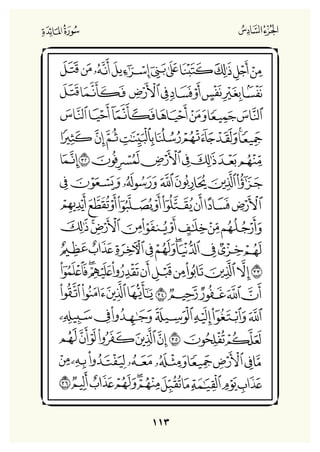 الجزء السادس سورة المائدة
مِنْ أَجْلِ ذَٰلِكَ كَتَبْنَا عَلَىٰ بَنِي إِسْرَائِيلَ أَنَّهُ مَن قَتَلَ
نَفْسًا بِغَيْرِ نَفْسٍ أَوْ فَسَادٍ فِي الْأَرْضِ فَكَأَنَّمَا قَتَلَ
النَّاسَ جَمِيعًا وَمَنْ أَحْيَاهَا فَكَأَنَّمَا أَحْيَا النَّاسَ
جَمِيعًا ۚ وَلَقَدْ جَاءَتْهُمْ رُسُلُنَا بِالْبَيِّنَاتِ ثُمَّ إِنَّ كَثِيرًا
مِّنْهُم بَعْدَ ذَٰلِكَ فِي الْأَرْضِ لَمُسْرِفُونَ ۝٣٢ إِنَّمَا
جَزَاءُ الَّذِينَ يُحَارِبُونَ اللَّهَ وَرَسُولَهُ وَيَسْعَوْنَ فِي
الْأَرْضِ فَسَادًا أَن يُقَتَّلُوا أَوْ يُصَلَّبُوا أَوْ تُقَطَّعَ أَيْدِيهِمْ
وَأَرْجُلُهُم مِّنْ خِلَافٍ أَوْ يُنفَوْا مِنَ الْأَرْضِ ۚ ذَٰلِكَ
لَهُمْ خِزْيٌ فِي الدُّنْيَا ۖ وَلَهُمْ فِي الْآخِرَةِ عَذَابٌ عَظِيمٌ
۝٣٣ إِلَّا الَّذِينَ تَابُوا مِن قَبْلِ أَن تَقْدِرُوا عَلَيْهِمْ ۖ فَاعْلَمُوا
أَنَّ اللَّهَ غَفُورٌ رَّحِيمٌ ۝٣٤ يَا أَيُّهَا الَّذِينَ آمَنُوا اتَّقُوا
اللَّهَ وَابْتَغُوا إِلَيْهِ الْوَسِيلَةَ وَجَاهِدُوا فِي سَبِيلِهِ
لَعَلَّكُمْ تُفْلِحُونَ ۝٣٥ إِنَّ الَّذِينَ كَفَرُوا لَوْ أَنَّ لَهُم
مَّا فِي الْأَرْضِ جَمِيعًا وَمِثْلَهُ مَعَهُ لِيَفْتَدُوا بِهِ مِنْ
عَذَابِ يَوْمِ الْقِيَامَةِ مَا تُقُبِّلَ مِنْهُمْ ۖ وَلَهُمْ عَذَابٌ أَلِيمٌ ۝٣٦
١١٣